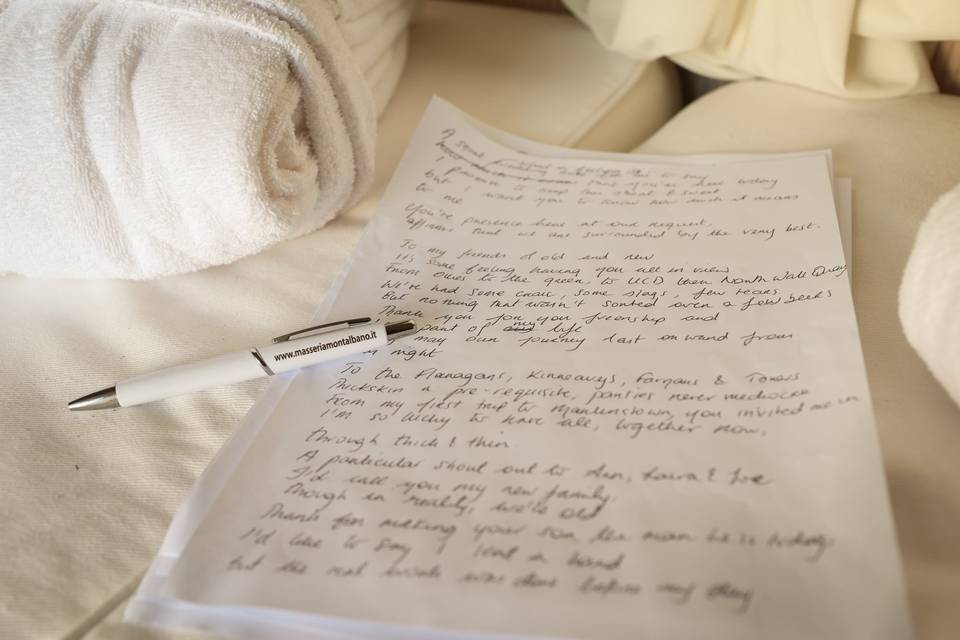 A
but I promise to keep this short & sweet
to me I want you to know how much it means
You're presence here at our request,
affirms that we are surrounded by the very best.
To my friends of old and new
it's some feeling having you all in view
From ones to the green, to UCD then North Wall Quay
We've had some craic, some slags, few tears.
But nothing that wasn't sorted over a few beers
Thank you for you freenship and
part of my life
may our journey last onward from
night
To the Flanagans, Kinneavys, Farnans & Toners
Thickskin a pre-requisite, parties never mediocre
From my first trip to you invited me in
I'm so lucky to have all, together now.
through thick & thin
A particular shout out to Ann, Laura & Joe
I'd call you my new family,
though in reality, we're old
Thanks for making your son the man he is today
I'd like to say I lent a hand
but the real work was done before my day
www.masseriamontalbano.it